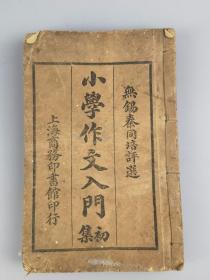 無錫秦同培評選
小學作文入門
初集
上海商務印書館印行